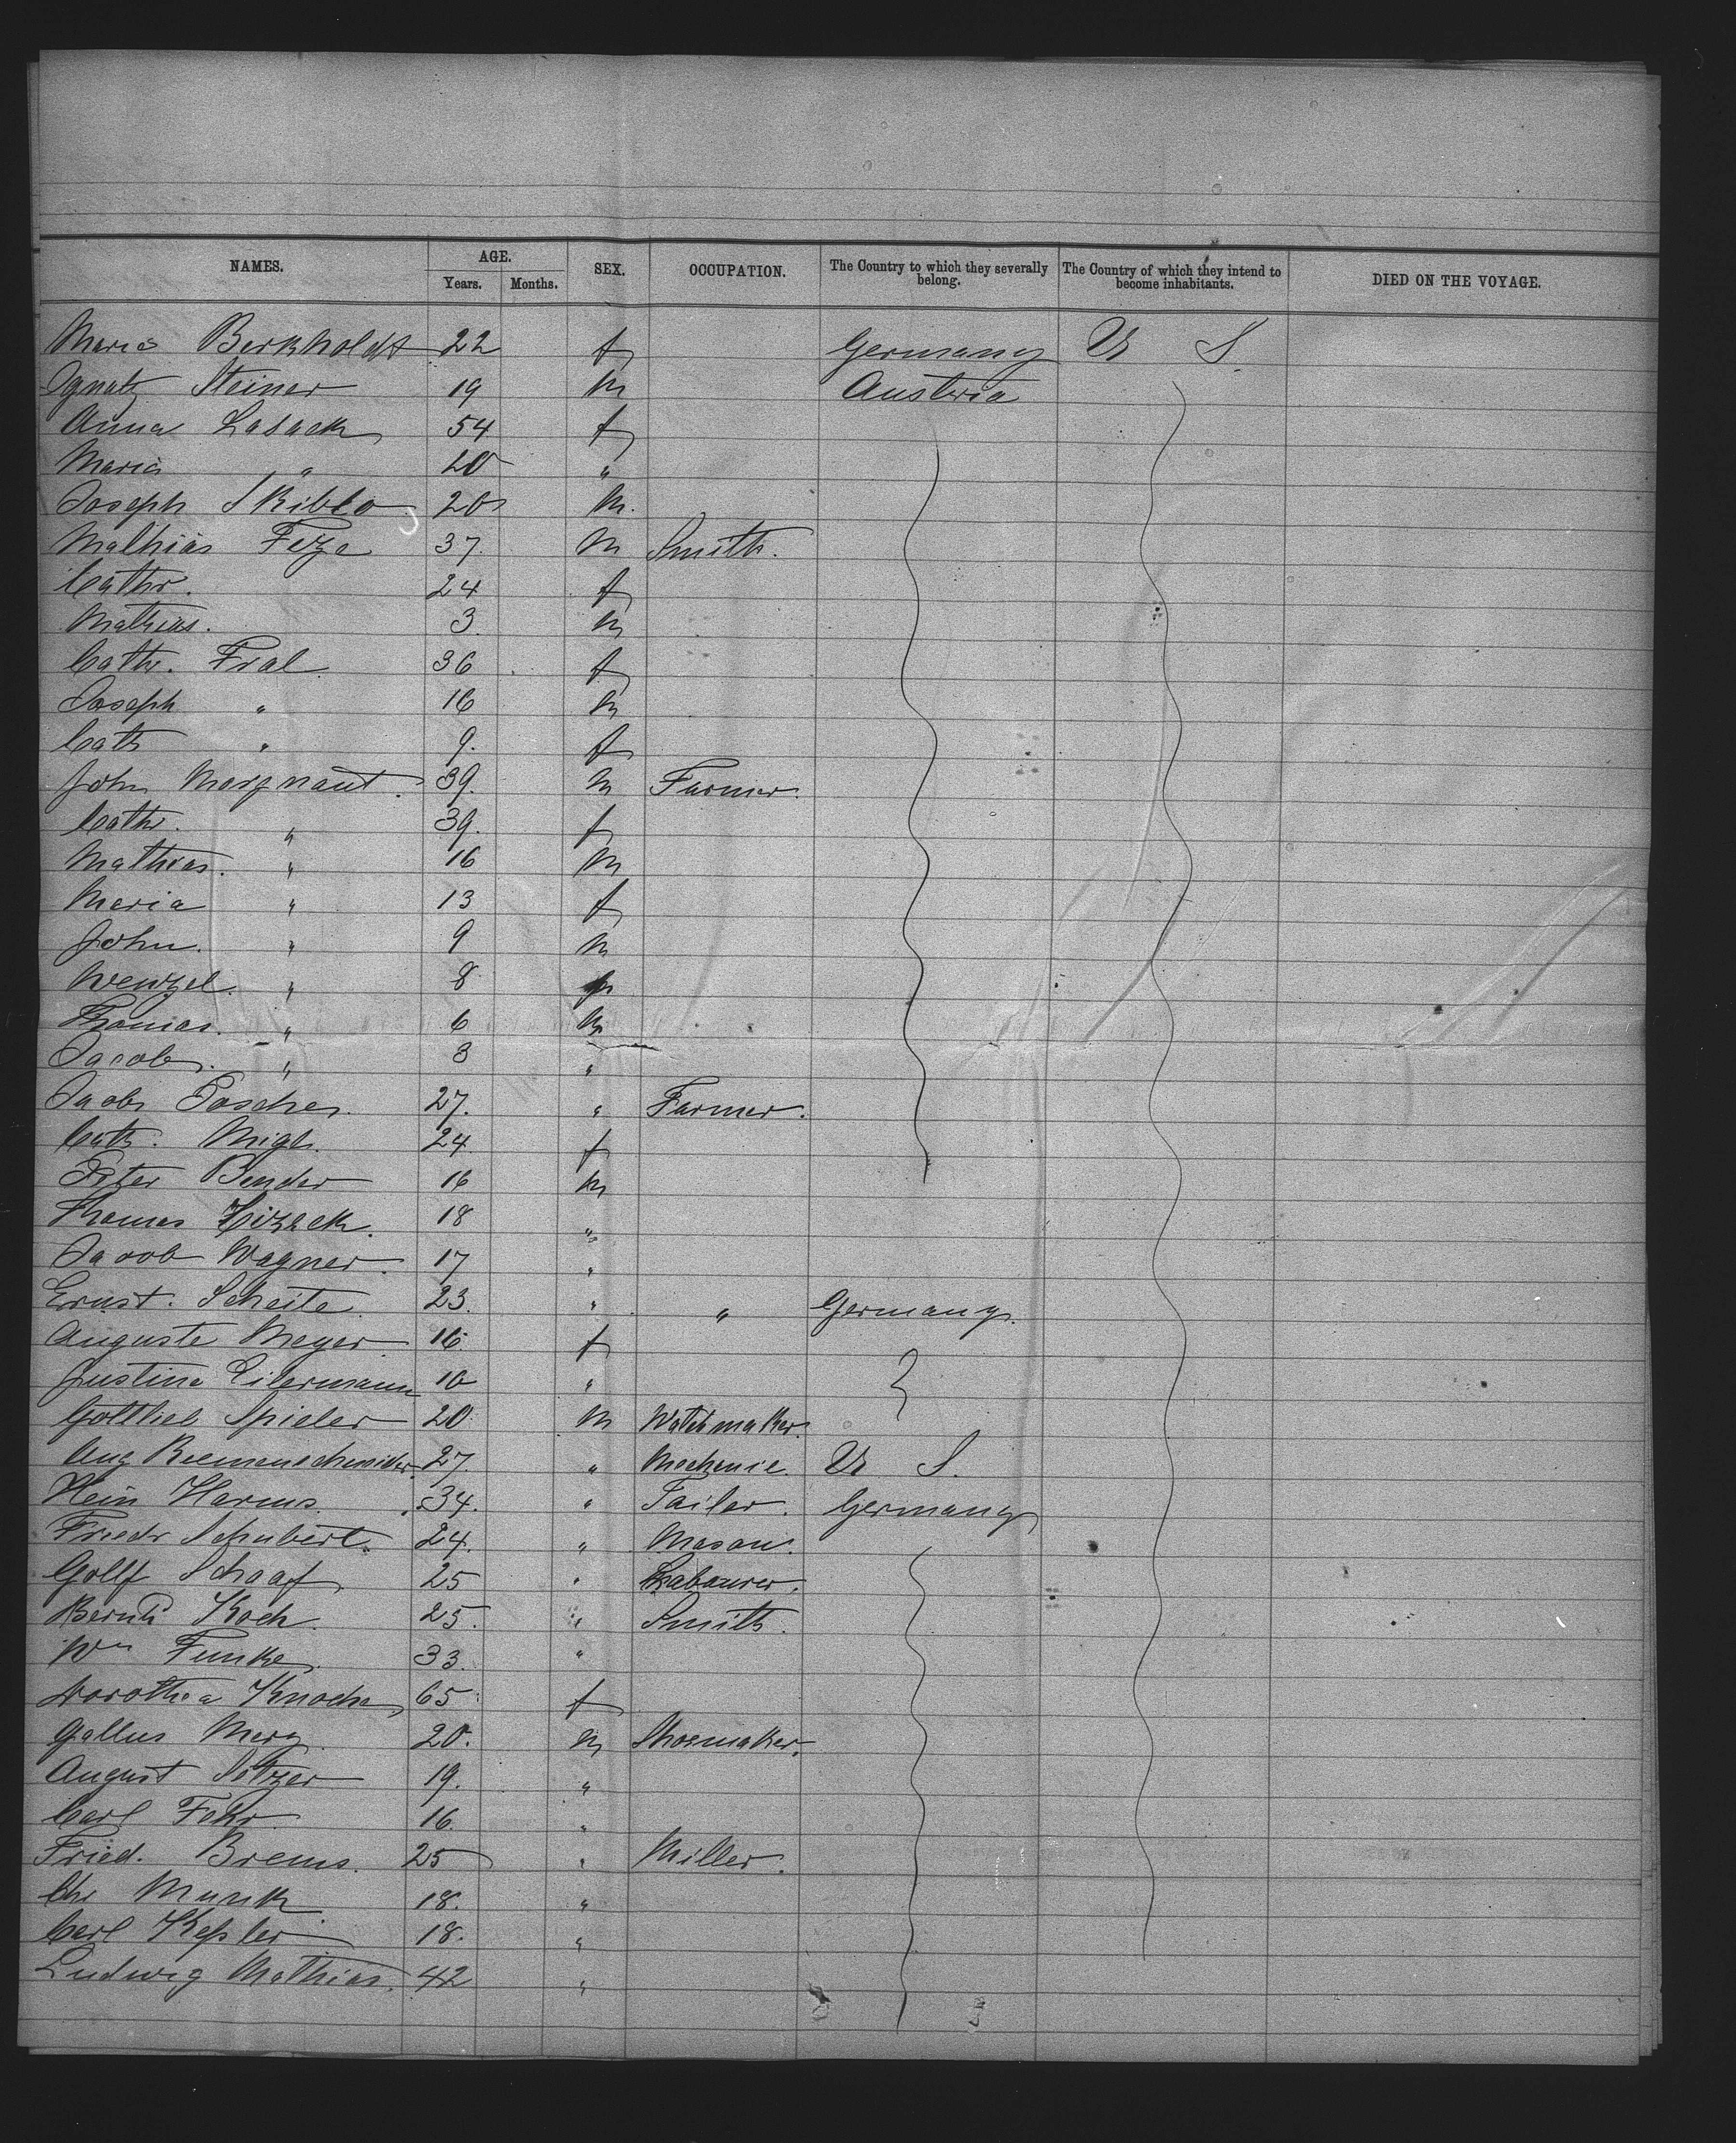 NAMES. AGE. SEX. OCCUPATION. The Country to which they severally belong. The Country of which they intend to become inhabitants. DIED ON THE VOYAGE.
Years. Months.
Maria Berkholdt 22 f Germany U S.
Ignatz Steiner 19 m Austria
Anna Lasack 54 f
Maria " 20 "
Joseph Skibba 20 m.
Mathias Feze 37. m Smith.
Cathr. 24 f
Mathias. 3. m
Cathr. Fral 36 f
Joseph " 16 m
Cath " 9. f
John Morgnaut. 39. m Farmer.
Cathr. " 39. f
Mathias. " 16 m
Maria " 13 f
John. " 9 m
Wenzel. " 8 m
Thomas. " 6 m
Jacob. " 3 "
Jacob Pascher. 27. " Farmer.
Cath. Migl. 24. f
Peter Bender 16 m
Thomas 18 "
Jacob Wagner. 17 "
Ernst. Scheite 23. " " Germany.
Auguste Meyer 16. f
Justine Eilermann 10 "
Gottlieb Spieler 20. m Watchmaker.
Aug Riemenschneider. 27. " Mechanic. U S.
Hein Harms 34. " Tailor. Germany
Friedr Schubert. 24. " Mason.
Gottf Schaaf. 25 " Labourer.
Bernh Koch. 25. " Smith.
Wm Funke. 33. "
Dorothea Knoche 65 f
Gallus Merz 20. m Shoemaker.
August Setzer 19. "
Carl Fehr 16. "
Fried. Brems. 25 " Miller.
Chr Munk. 18. "
Carl Kessler 18. "
Ludwig Mathias. 42 "